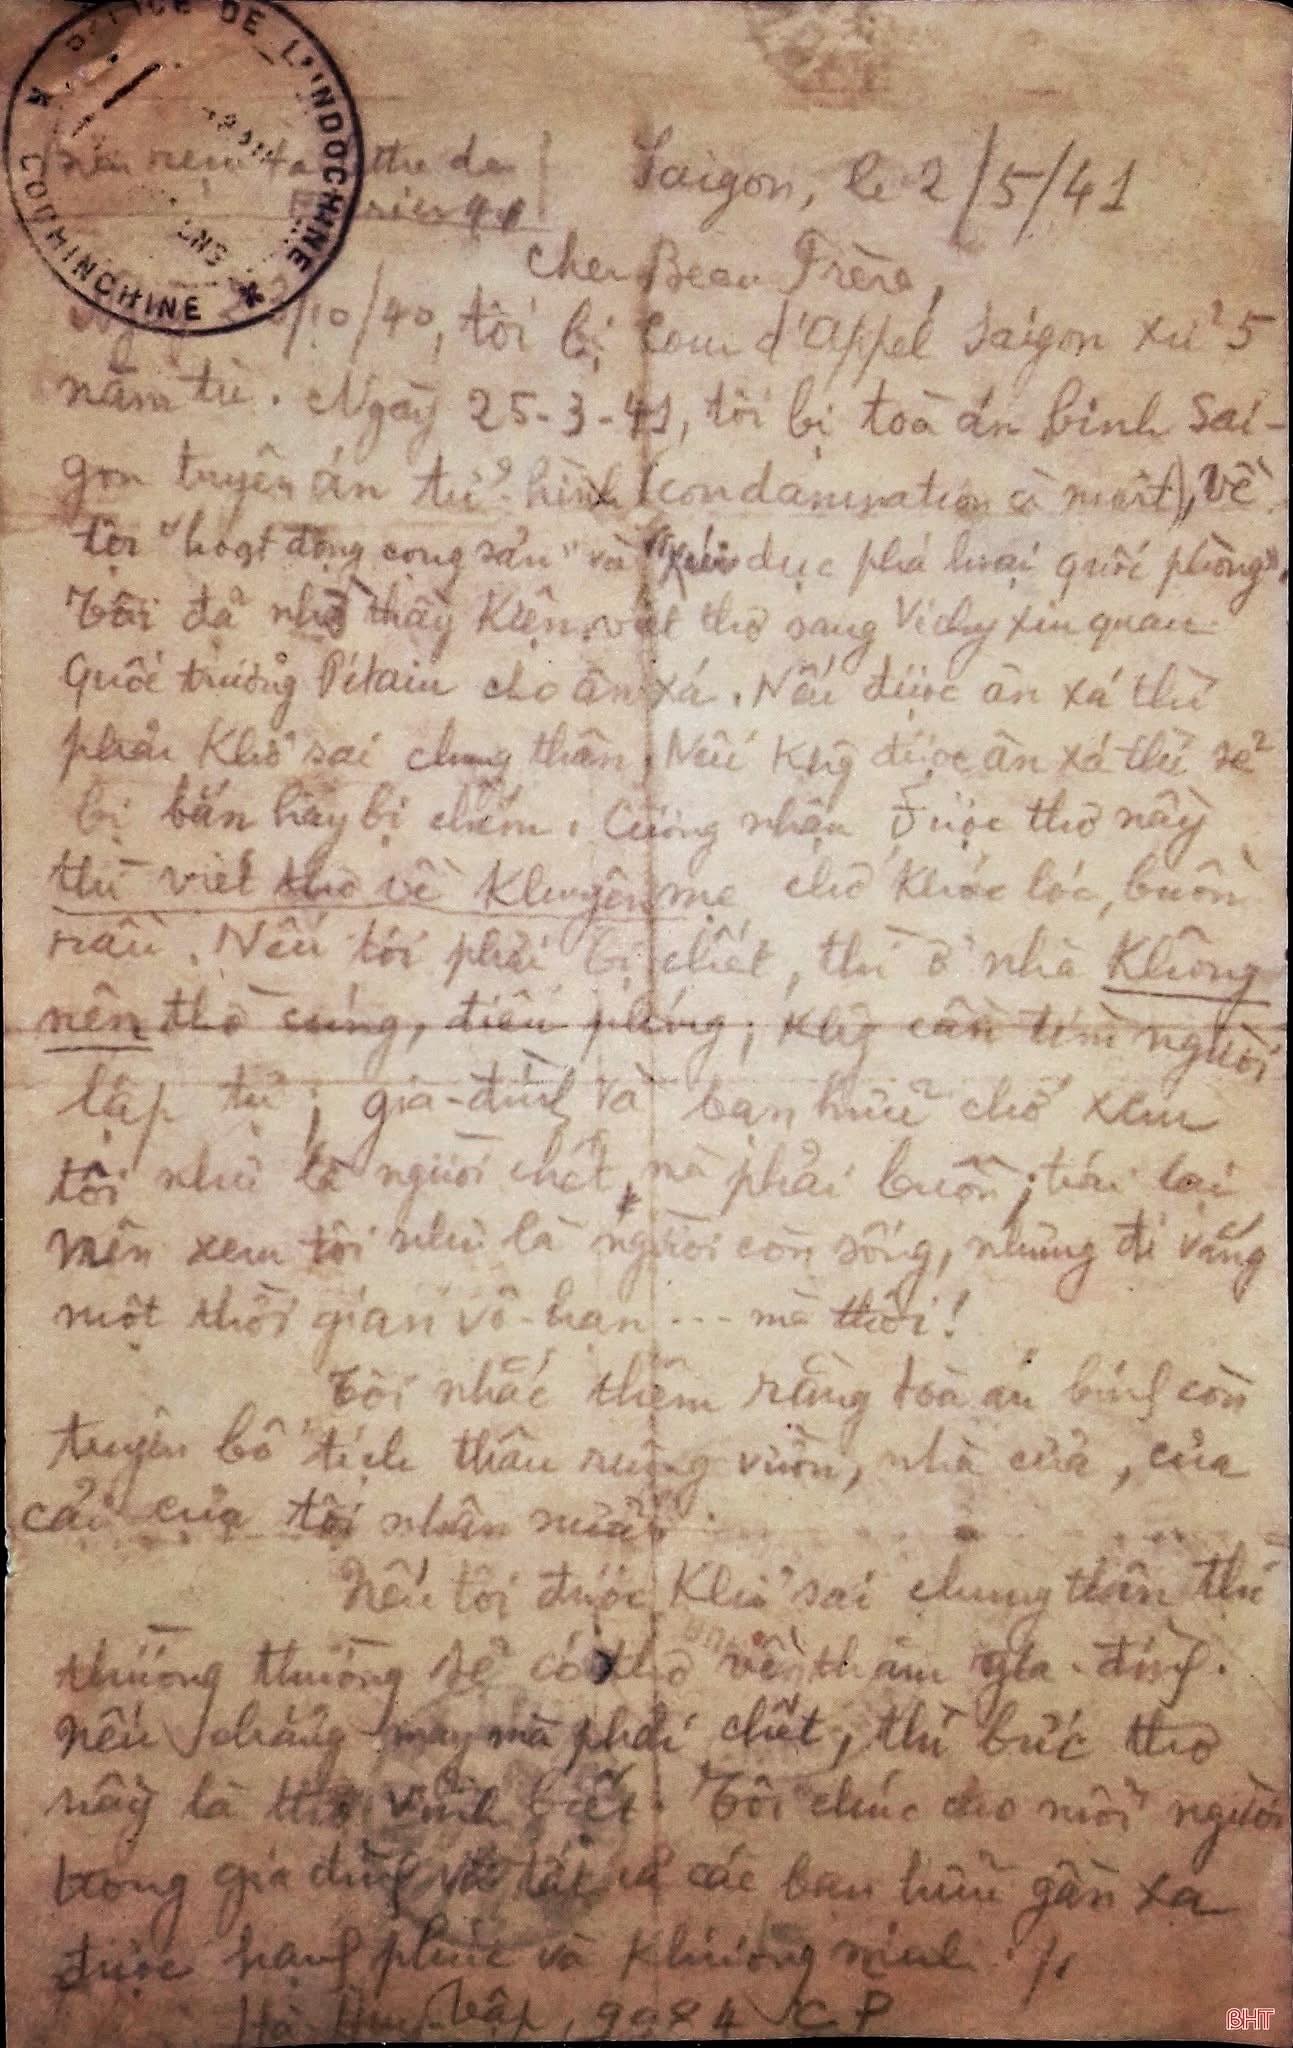 POLICE DE L'INDOCHINE
COCHINCHINE
Saigon, le 2/5/41
Cher Beau Frère,
/10/40, tôi bị Cour d'appel Saigon xử 5
năm tù. Ngày 25-3-41, tôi bị toà án binh Sai-
gon tuyên án tử hình (condamnation à mort), về
tội "hoạt động cộng sản" và "xúi dục phá hoại quốc phòng".
Tôi đã nhờ thầy Kiện viết thơ sang Vichy xin quan
Quốc trưởng Pétain cho ân xá. Nếu được ân xá thì
phải Khổ sai chung thân. Nếu Khg được ân xá thì sẽ
bị bắn hay bị chém. Cương nhận được thơ nầy
thì viết thơ về Khuyên mẹ chớ Khóc lóc, buồn
rầu. Nếu tôi phải bị chết, thì ở nhà Không
nên thờ cúng, điếu phúng; Khg cần tìm người
lập tự; gia-đình và bạn hữu chớ xem
tôi như là người chết, mà phải buồn; trái lại
nên xem tôi như là người còn sống, nhưng đi vắng
một thời gian vô-hạn --- mà thôi!
Tôi nhắc thêm rằng toà án binh còn
tuyên bố tịch thâu ruộng vườn, nhà cửa, của
cải của tôi nhân nữa.
Nếu tôi được Khổ sai chung thân thì
thường thường sẽ có thơ về thăm gia-đình.
Nếu chẳng may mà phải chết, thì bức thơ
nầy là thơ vĩnh biệt. Tôi chúc cho mỗi người
trong gia đình và tất cả các bạn hữu gần xa
được hạnh phúc và Khương ninh./.
Hà Huy Tập, 9984 CP
BHT